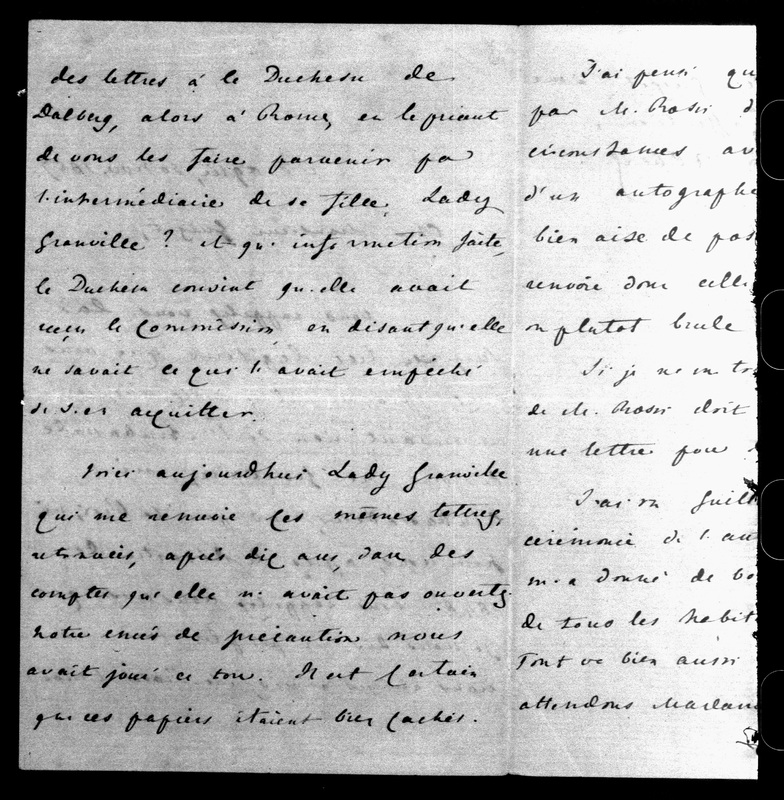 des lettres à la Duchesse de
Dalberg, alors à Rome, en le priant
de vous les faire parvenir par
l'intermédiaire de sa fille, Lady
Granville ? et qu'information faite,
la Duchesse convint qu'elle avait
reçu la Commission, en disant qu'elle
ne savait ce qui l'avait empêché
de s'en acquitter.
Voici aujourdhui Lady Granville
qui me renvoie ces mêmes lettres,
retrouvées, après dix ans, dans des
comptes que elle n'avait pas ouverts.
Notre excès de précaution nous
avait joué ce tour. Il est certain
que ces papiers étaient bien cachés.
J'ai pensé qu
par M. Rossi d
circonstances av
d'un autographe
bien aise de pas
renvoie donc celle
ou plutot brule
Si je ne m tro
de M. Rossi doit
une lettre pour
J'ai vu Guill
cérémonie de l'au
m'a donné de bo
de tous les habit
Tout va bien aussi
attendons Madame